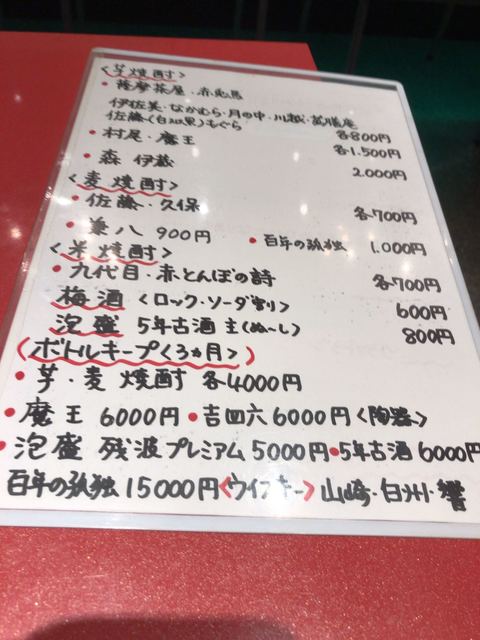 <芋焼酎>
・薩摩茶屋・赤兎馬
伊佐美・なかむら・月の中・川越・萬膳庵
佐藤(白又は黒)もぐら 各800円
・村尾・魔王 各1.500円
・森伊蔵 2.000円
<麦焼酎>
・佐藤・久保 各700円
兼八 900円 ・百年の孤独 1.000円
<米焼酎>
・九代目・赤とんぼの詩 各700円
梅酒<ロック・ソーダ割り> 600円
泡盛 5年古酒 主(ぬ〜し) 800円
(ボトルキープ<3ヵ月>)
・芋・麦焼酎 各4000円
・魔王 6000円 ・吉四六 6000円<陶器>
・泡盛 残波プレミアム 5000円 ・5年古酒 6000円
百年の孤独 15000円 <ウイスキー> 山崎・白州・響